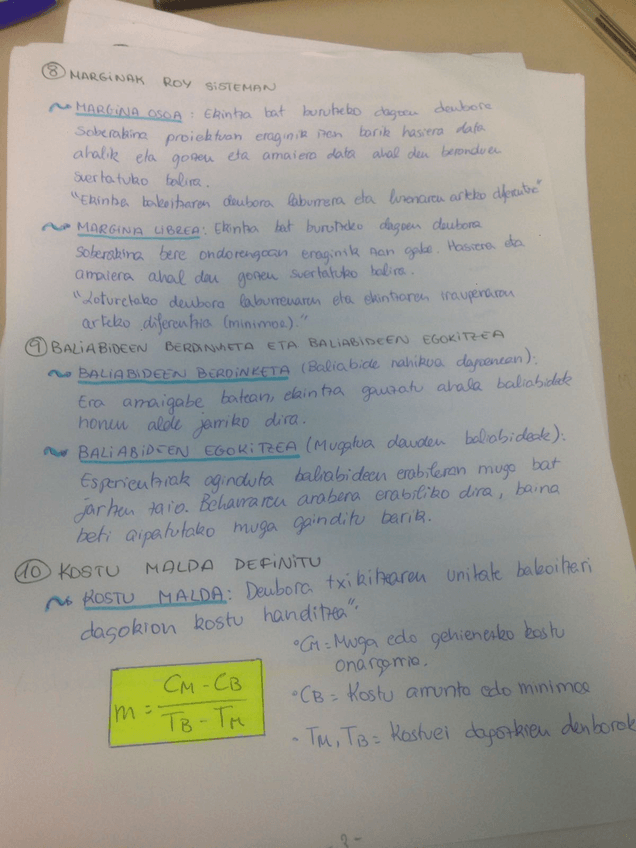 ⑧ MARGINAK ROY SISTEMAN
MARGINA OSOA: Ekintza bat burutzeko dagoen denbora
soberakina proiektuan eraginik izan barik hasiera data
ahalik eta goren eta amaiera data ahal den beranduen
suertatuko balira.
"Ekintza bakoitzaren denbora laburrena eta luzenaren arteko diferentzia"
MARGINA LIBREA: Ekintza bat burutzeko dagoen denbora
soberakina bere ondorengoan eraginik izan gabe. Hasiera eta
amaiera ahal den goren suertatuko balira.
"Loturetako denbora laburrenaren eta ekintzaren iraupenaren
arteko diferentzia (minimoa)."
⑨ BALIABIDEEN BERDINKETA ETA BALIABIDEEN EGOKITZEA
BALIABIDEEN BERDINKETA (Baliabide nahikoa dagoenean):
Era amaigabe batean, ekintza gauzatu ahala baliabideak
honen alde jarriko dira.
BALIABIDEEN EGOKITZEA (Mugatua dauden baliabideak):
Esperientziak aginduta baliabideen erabileran muga bat
jartzen zaio. Beharraren arabera erabiliko dira, baina
beti aipatutako muga gainditu barik.
⑩ KOSTU MALDA DEFINITU
KOSTU MALDA: Denbora txikitzearen unitate bakoitzari
dagokion kostu handitzea".
m = (CM - CB) / (TB - TM)
° CM = Muga edo gehienezko kostu
onargarria.
° CB = Kostu arrunta edo minimoa
- TM, TB = Kostuei dagozkien denborak